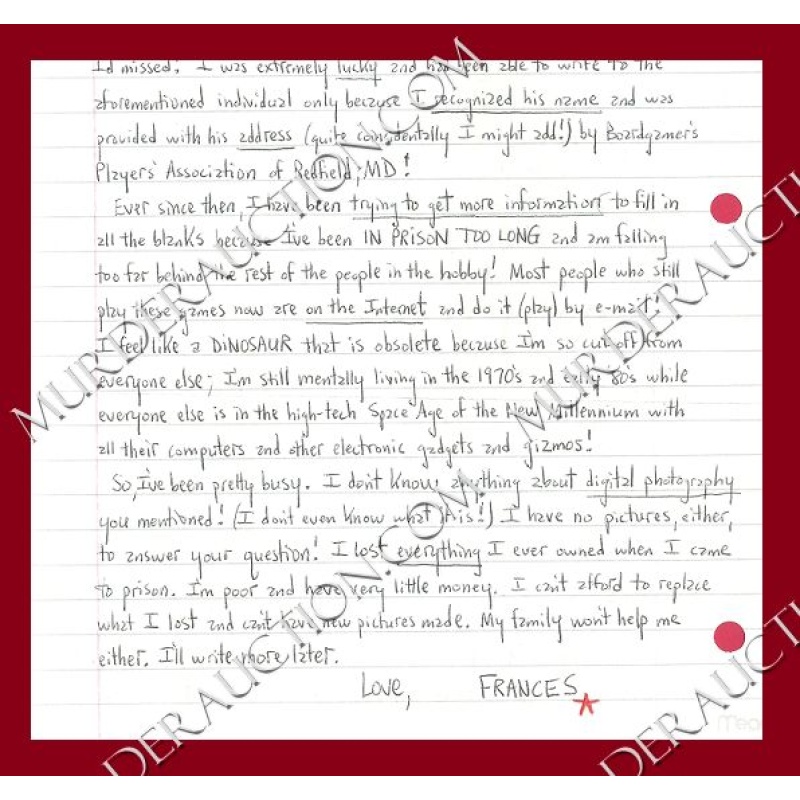 I'd missed; I was extremely lucky and had been able to write to the
aforementioned individual only because I recognized his name and was
provided with his address (quite coincidentally I might add!) by Boardgamer's
Players' Association of Redfield, MD!
Ever since then, I have been trying to get more information to fill in
all the blanks because I've been IN PRISON TOO LONG and am falling
too far behind the rest of the people in the hobby! Most people who still
play these games now are on the Internet and do it (play) by e-mail!
I feel like a DINOSAUR that is obsolete because I'm so cut off from
everyone else; I'm still mentally living in the 1970's and early '80's while
everyone else is in the high-tech Space Age of the New Millennium with
all their computers and other electronic gadgets and gizmos!
So, I've been pretty busy. I don't know anything about digital photography
you mentioned! (I don't even know what it is!) I have no pictures, either,
to answer your question! I lost everything I ever owned when I came
to prison. I'm poor and have very little money. I can't afford to replace
what I lost and can't have new pictures made. My family won't help me
either. I'll write more later.
Love, FRANCES
MURDERAUCTION.COM
MURDERAUCTION.COM
MURDERAUCTI
DERAUCTI
DERAUCTI
Mea